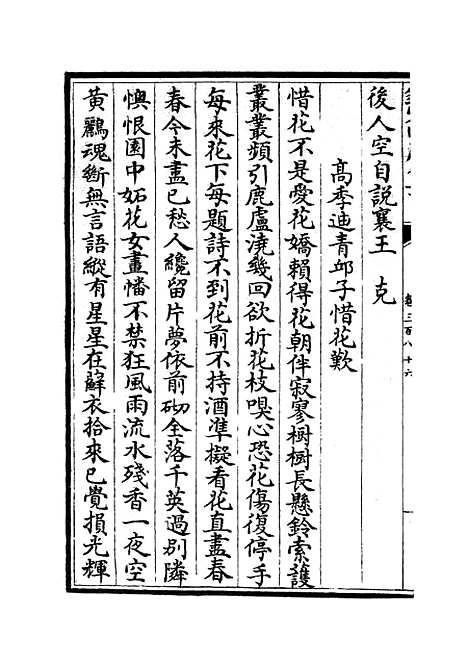 後人空自説襄王　克
高季迪青邱子惜花歎
惜花不是愛花嬌賴得花朝伴寂寥樹樹長懸鈴索護
叢叢頻引鹿盧澆幾回欲折花枝嗅心恐花傷復停手
每來花下每題詩不到花前不持酒準擬看花直盡春
春今未盡已愁人纔留片夢依前砌全落千英過别隣
懊恨園中妬花女畫幡不禁狂風雨流水殘香一夜空
黄鸝魂斷無言語縱有星星在蘚衣拾來已覺損光輝